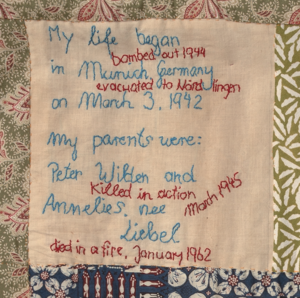 My life began
bombed out 1944
in Munich, Germany
evacuated to Nördlingen
on March 3, 1942
My parents were:
Peter Wilden and
Killed in action
March 1945
Annelies, nee
Liebel
died in a fire, January 1962